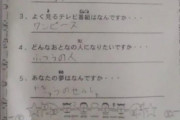 3. よく見るテレビ番組はなんですか・・・
ワンピース
4. どんなおとなの人になりたいですか・・・
ふつうの人
5. あなたの夢はなんですか・・・